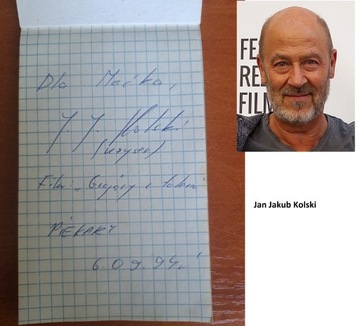 Dla Maćka,
J. J. Kolski
(reżyser)
Film „Grający z talerza"
PIEKARY
6.09.94.
FE
REL
FILM
Jan Jakub Kolski